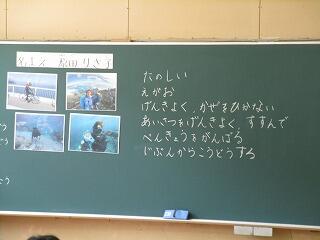 たのしい
えがお
げんきよく、かぜをひかない
あいさつをげんきよく、すすんで
べんきょうをがんばる
じぶんからこうどうする